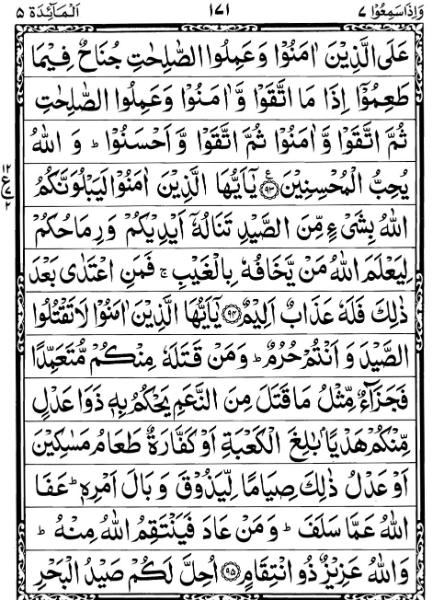 وَاِذَا سَمِعُوْا ٧ ١٧١ اَلْمَآئِدَة ٥
عَلَى الَّذِيْنَ اٰمَنُوْا وَعَمِلُوا الصّٰلِحٰتِ جُنَاحٌ فِيْمَا
طَعِمُوْۤا اِذَا مَا اتَّقَوْا وَّاٰمَنُوْا وَعَمِلُوا الصّٰلِحٰتِ
ثُمَّ اتَّقَوْا وَّاٰمَنُوْا ثُمَّ اتَّقَوْا وَّاَحْسَنُوْا ؕ وَ اللّٰهُ
يُحِبُّ الْمُحْسِنِيْنَ ﴿٩٣﴾ يٰۤاَيُّهَا الَّذِيْنَ اٰمَنُوْا لَيَبْلُوَنَّكُمُ
١٢
ع
٢
اللّٰهُ بِشَيْءٍ مِّنَ الصَّيْدِ تَنَالُهٗۤ اَيْدِيْكُمْ وَرِمَاحُكُمْ
لِيَعْلَمَ اللّٰهُ مَنْ يَّخَافُهٗ بِالْغَيْبِ ۚ فَمَنِ اعْتَدٰى بَعْدَ
ذٰلِكَ فَلَهٗ عَذَابٌ اَلِيْمٌ ﴿٩٤﴾ يٰۤاَيُّهَا الَّذِيْنَ اٰمَنُوْا لَا تَقْتُلُوا
الصَّيْدَ وَ اَنْتُمْ حُرُمٌ ؕ وَمَنْ قَتَلَهٗ مِنْكُمْ مُّتَعَمِّدًا
فَجَزَآءٌ مِّثْلُ مَا قَتَلَ مِنَ النَّعَمِ يَحْكُمُ بِهٖ ذَوَا عَدْلٍ
مِّنْكُمْ هَدْيًۢا بٰلِغَ الْكَعْبَةِ اَوْ كَفَّارَةٌ طَعَامُ مَسٰكِيْنَ
اَوْ عَدْلُ ذٰلِكَ صِيَامًا لِّيَذُوْقَ وَبَالَ اَمْرِهٖ ؕ عَفَا
اللّٰهُ عَمَّا سَلَفَ ؕ وَمَنْ عَادَ فَيَنْتَقِمُ اللّٰهُ مِنْهُ ؕ
وَاللّٰهُ عَزِيْزٌ ذُو انْتِقَامٍ ﴿٩٥﴾ اُحِلَّ لَكُمْ صَيْدُ الْبَحْرِ